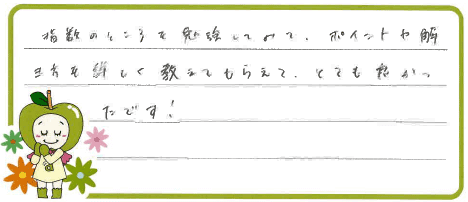 指数のところを勉強してみて、ポイントや解
き方を詳しく教えてもらえて、とても良かっ
たです!